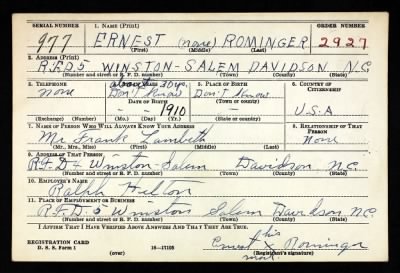 SERIAL NUMBER 1. NAME (Print) ORDER NUMBER
977 ERNEST (none) ROMINGER 2927
(First) (Middle) (Last)
2. ADDRESS (Print)
R.F.D 5 WINSTON-SALEM DAVIDSON N.C.
(Number and street or R. F. D. number) (Town) (County) (State)
3. TELEPHONE 4. AGE IN YEARS 5. PLACE OF BIRTH 6. COUNTRY OF CITIZENSHIP
about 30 yrs.
none Don't Know Don't Know
DATE OF BIRTH (Town or county)
1910 U.S.A
(Exchange) (Number) (Mo.) (Day) (Yr.) (State or country)
7. NAME OF PERSON WHO WILL ALWAYS KNOW YOUR ADDRESS 8. RELATIONSHIP OF THAT PERSON
Mr Frank Lambeth None
(Mr., Mrs., Miss) (First) (Middle) (Last)
9. ADDRESS OF THAT PERSON
R.F.D 4 Winston-Salem Davidson N.C.
(Number and street or R. F. D. number) (Town) (County) (State)
10. EMPLOYER'S NAME
Ralph
11. PLACE OF EMPLOYMENT OR BUSINESS
R.F.D. 5 Winston Salem Davidson N.C.
(Number and street or R. F. D. number) (Town) (County) (State)
I AFFIRM THAT I HAVE VERIFIED ABOVE ANSWERS AND THAT THEY ARE TRUE.
his
REGISTRATION CARD
D. S. S. Form 1 16—17105 Ernest x Rominger
(over) (Registrant's signature)